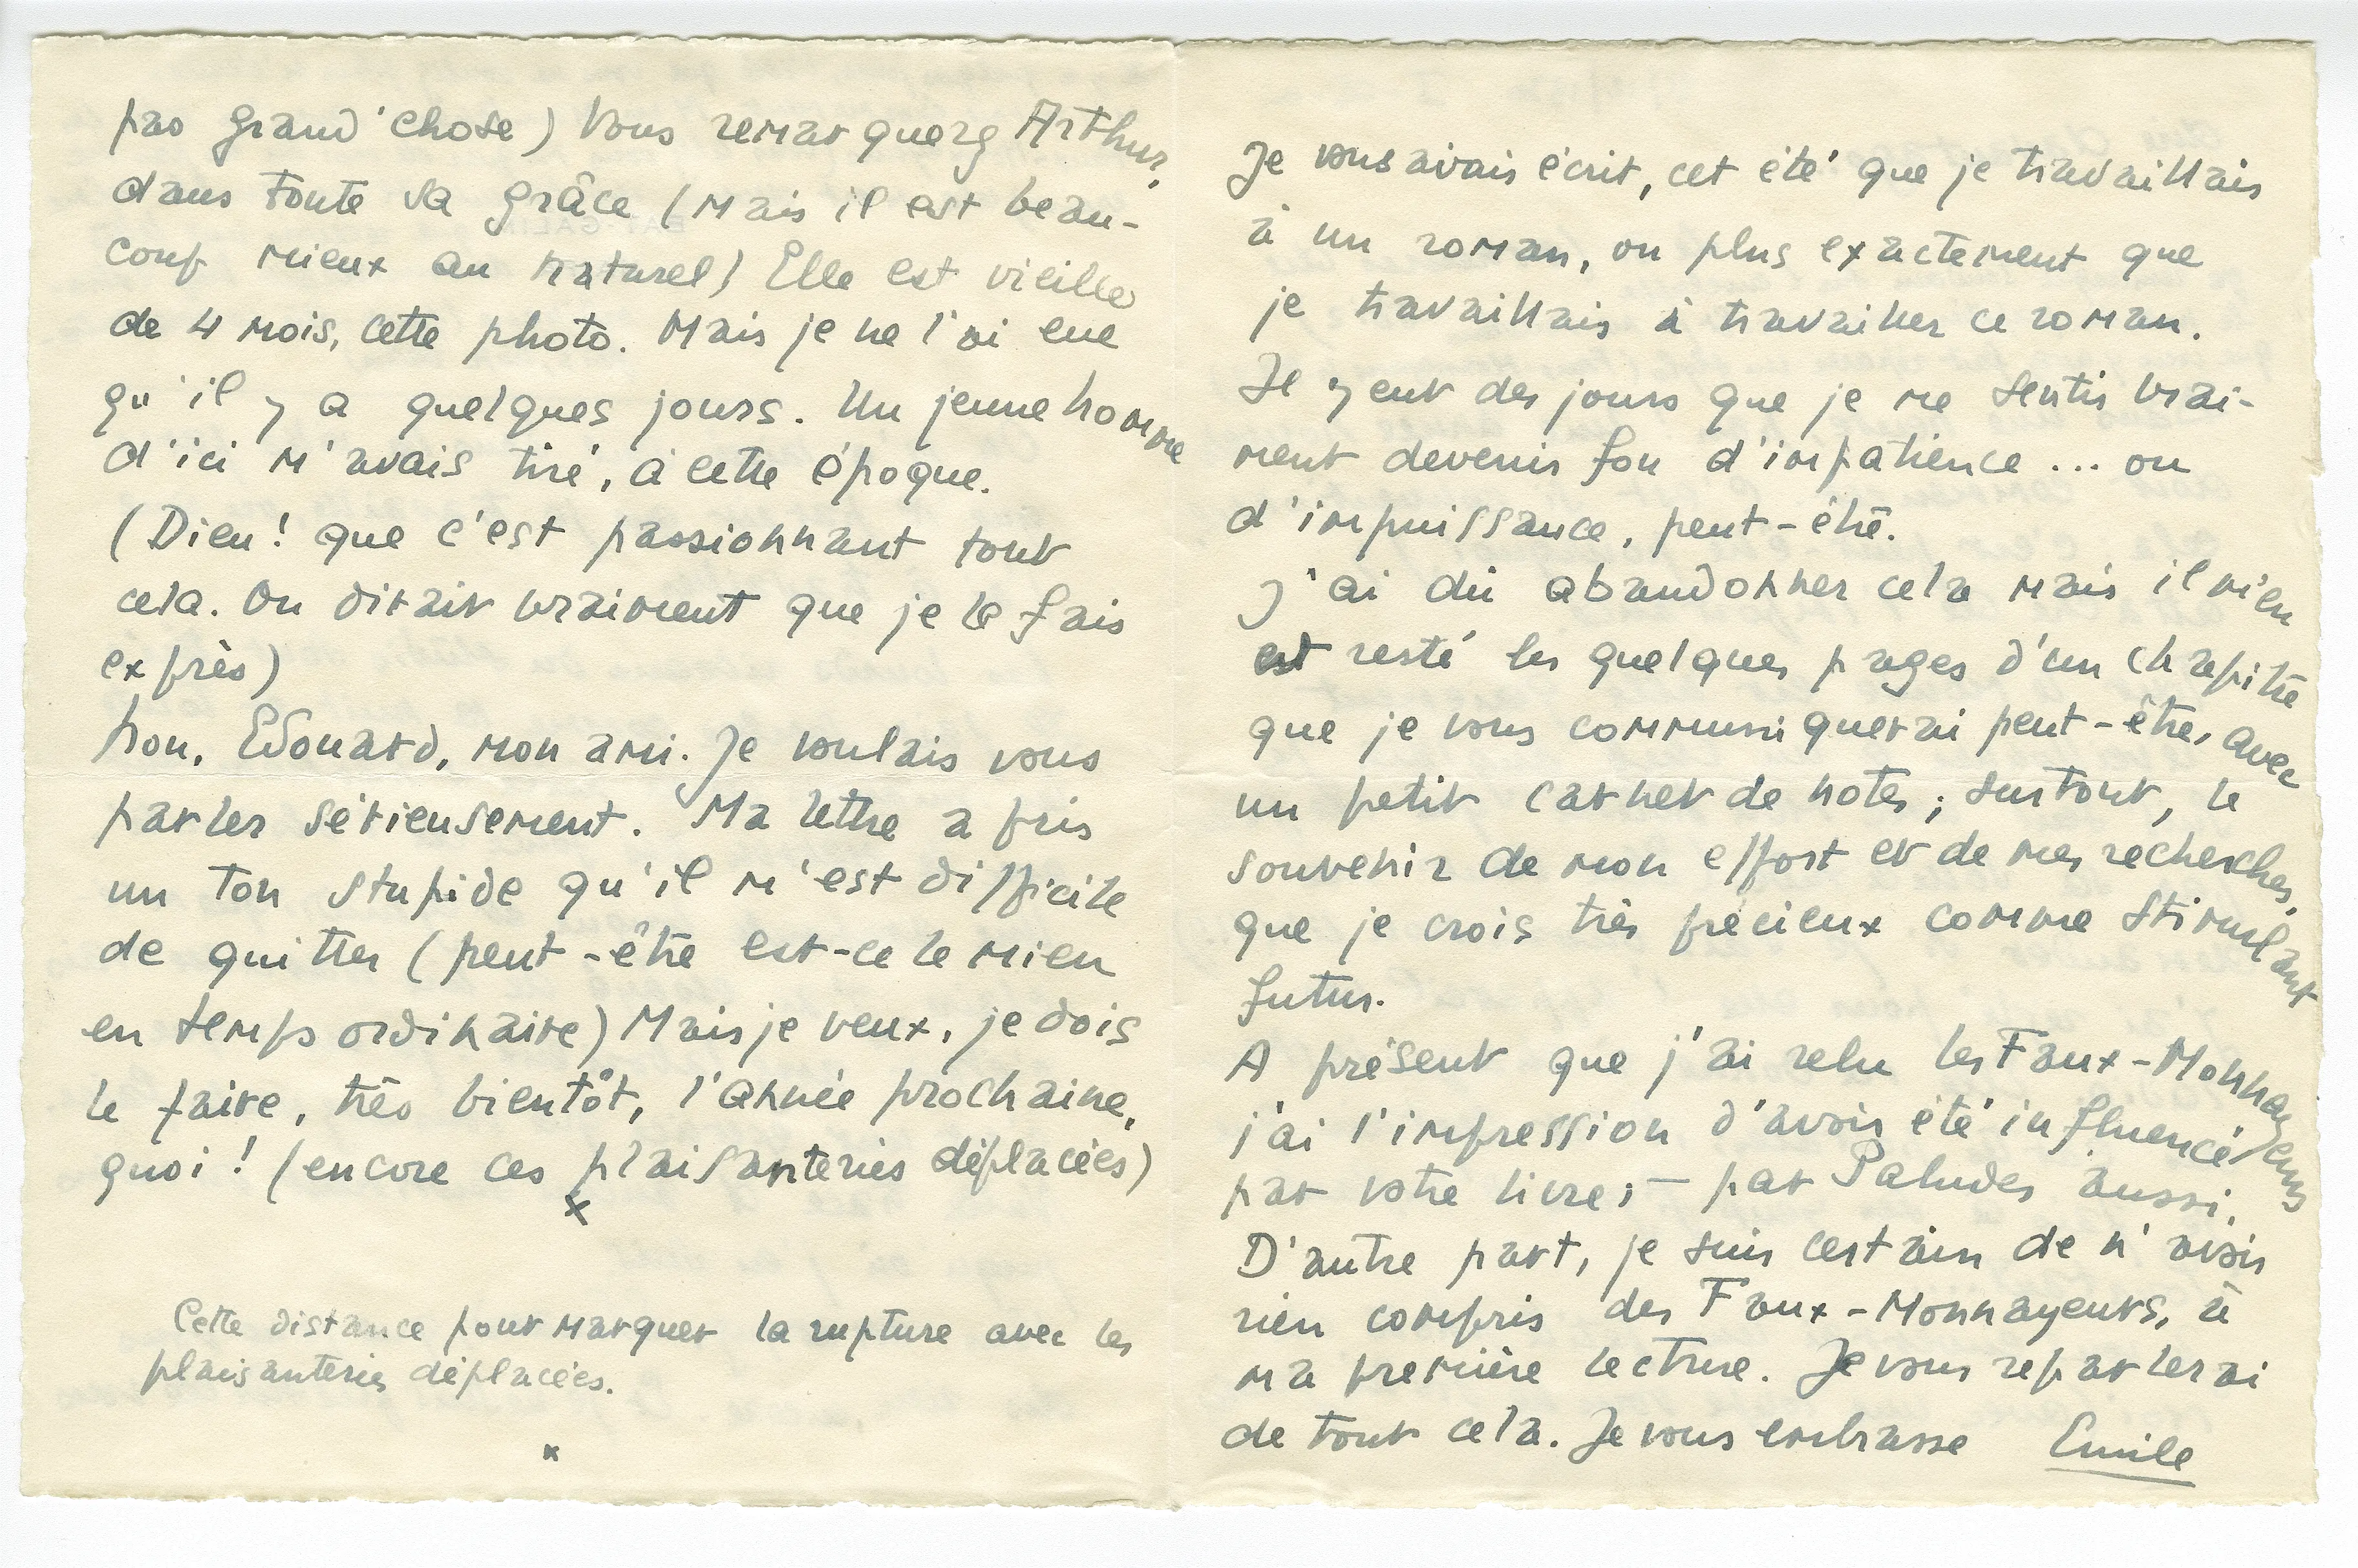 pas grand'chose) Vous remarquerez Arthur,
dans toute sa grâce (Mais il est beau-
coup mieux au naturel) Elle est vieille
de 4 mois, cette photo. Mais je ne l'ai eue
qu'il y a quelques jours. Un jeune homme
d'ici m'avais tiré, à cette époque.
(Dieu! que c'est passionnant tout
cela. On dirait vraiment que je le fais
exprès)
Non, Edouard, mon ami. Je voulais vous
parler sérieusement. Ma lettre a pris
un ton stupide qu'il m'est difficile
de quitter (peut-être est-ce le mien
en temps ordinaire) Mais je veux, je dois
le faire, très bientôt, l'année prochaine,
quoi! (encore ces plaisanteries déplacées)
x
Cette distance pour marquer la rupture avec les
plaisanteries déplacées.
x
Je vous avais écrit, cet été que je travaillais
à un roman, ou plus exactement que
je travaillais à travailler ce roman.
Il y eut des jours que je me sentis vrai-
ment devenir fou d'impatience... ou
d'impuissance, peut-être.
J'ai dû abandonner cela mais il m'en
est resté les quelques pages d'un chapitre
que je vous communiquerai peut-être, avec
un petit carnet de notes; surtout, le
souvenir de mon effort et de mes recherches,
que je crois très précieux comme stimulant
futur.
A présent que j'ai relu les Faux-Monnayeurs
j'ai l'impression d'avoir été influencé
par votre livre; — par Paludes aussi.
D'autre part, je suis certain de n'avoir
rien compris des Faux-Monnayeurs, à
ma première lecture. Je vous reparlerai
de tout cela. Je vous embrasse Emile